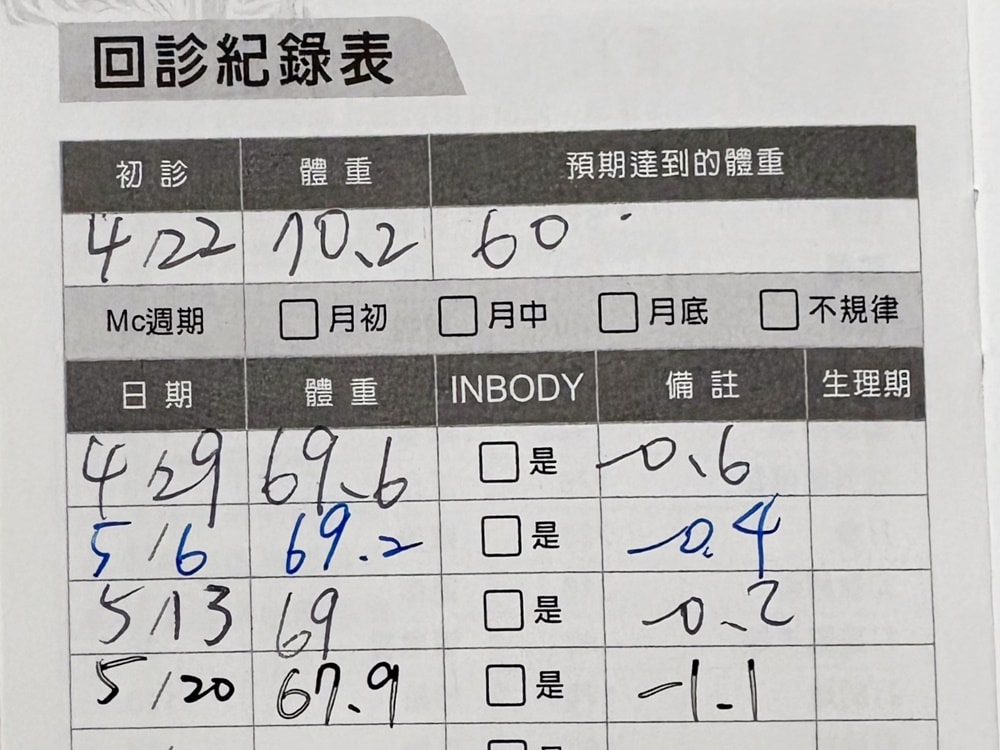 回診紀錄表
初診 體重 預期達到的體重
4/22 70.2 60
Mc週期 □月初 □月中 □月底 □不規律
日期 體重 INBODY 備註 生理期
4/29 69.6 □是 -0.6
5/6 69.2 □是 -0.4
5/13 69 □是 -0.2
5/20 67.9 □是 -1.1